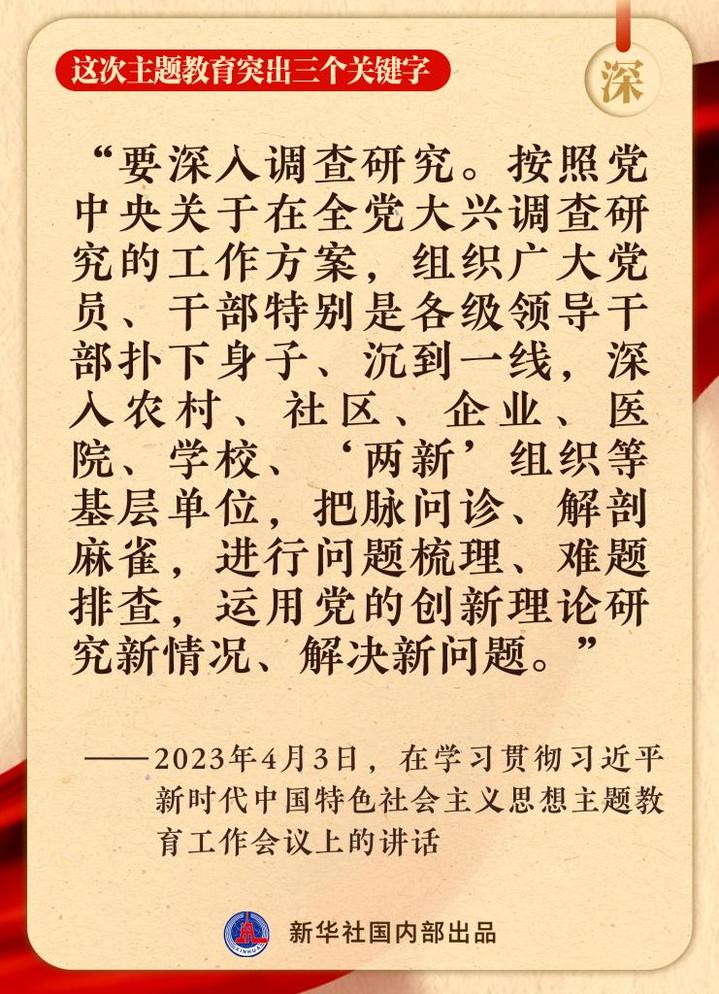 这次主题教育突出三个关键字
深
“要深入调查研究。按照党
中央关于在全党大兴调查研
究的工作方案，组织广大党
员、干部特别是各级领导干
部扑下身子、沉到一线，深
入农村、社区、企业、医
院、学校、‘两新’组织等
基层单位，把脉问诊、解剖
麻雀，进行问题梳理、难题
排查，运用党的创新理论研
究新情况、解决新问题。”
——2023年4月3日，在学习贯彻习近平
新时代中国特色社会主义思想主题教
育工作会议上的讲话
XINHUA
新华社国内部出品